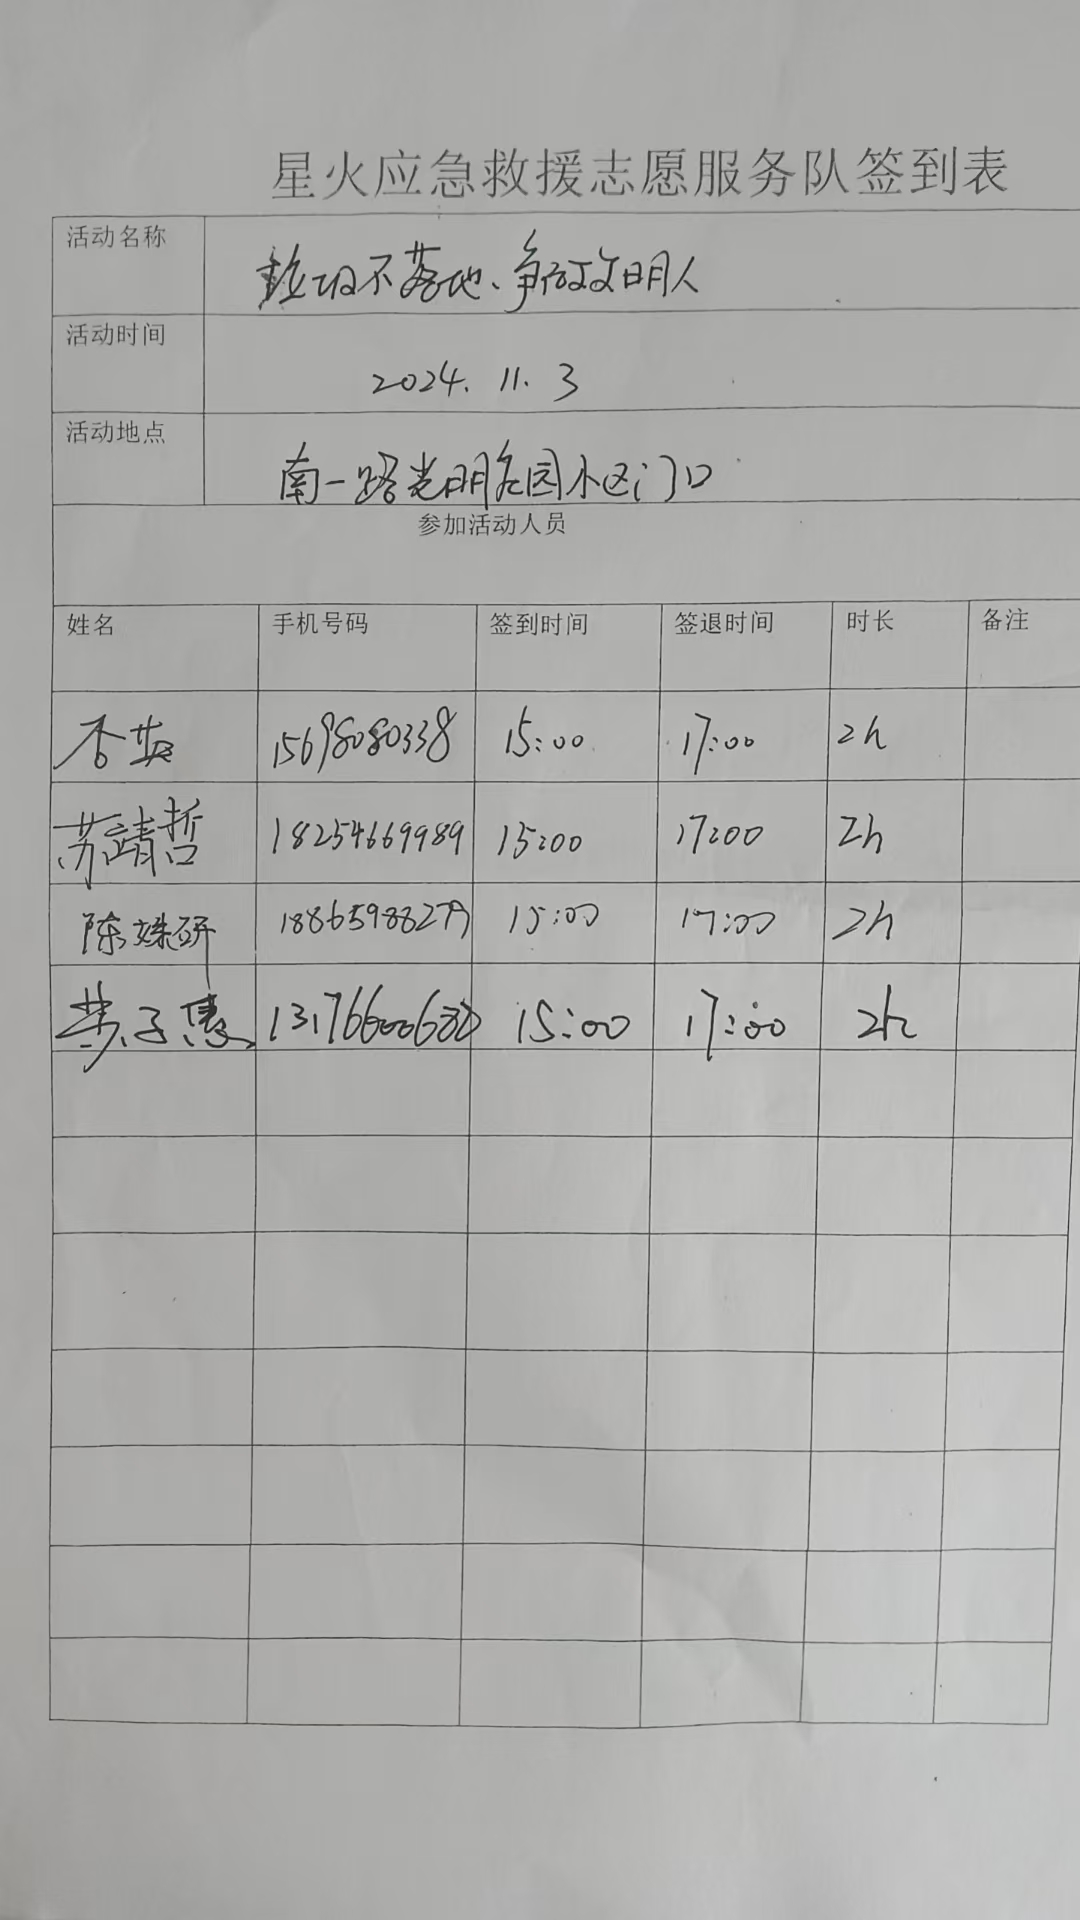 星火应急救援志愿服务队签到表
活动名称 垃圾不落地、争做文明人
活动时间 2024. 11. 3
活动地点 南一路光明花园小区门口
参加活动人员
姓名 手机号码 签到时间 签退时间 时长 备注
15698080338 15:00 17:00 2h
苏靖哲 18254669989 15:00 17:00 2h
陈姝研 18865988279 15:00 17:00 2h
15:00 17:00 2h